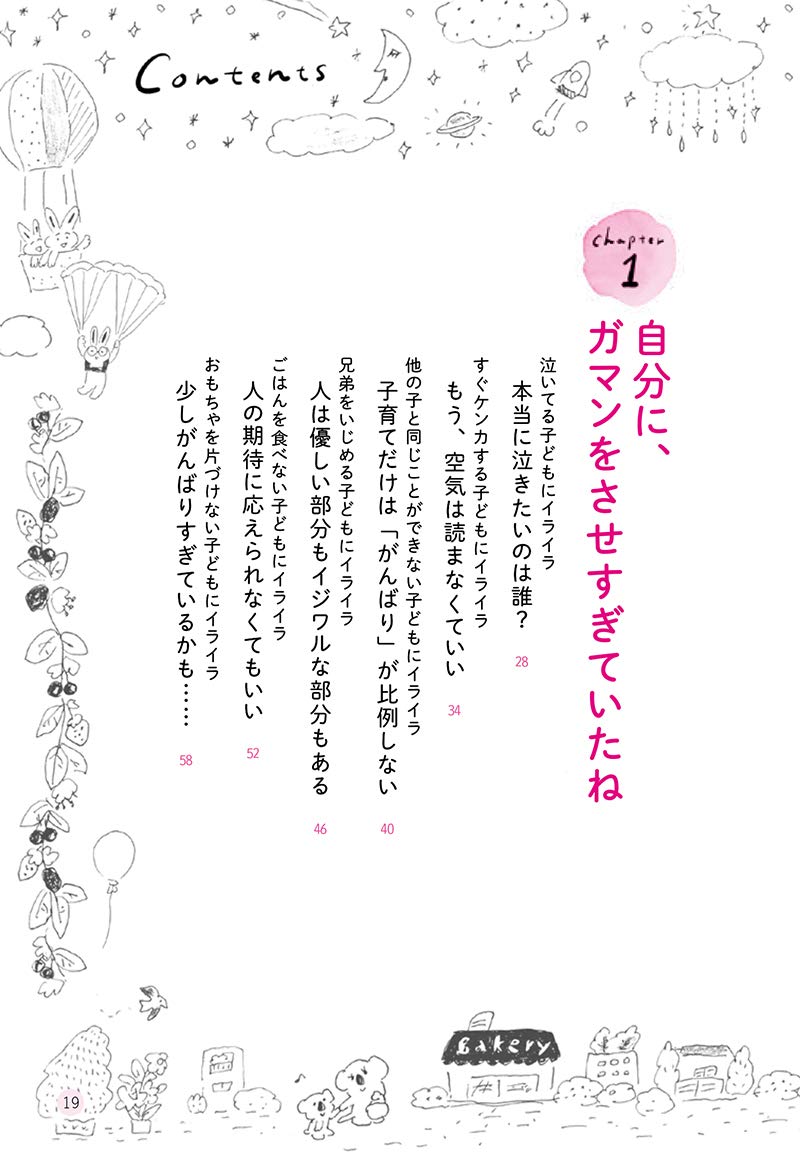 Contents
chapter
1
自分に、
ガマンをさせすぎていたね
泣いてる子どもにイライラ
本当に泣きたいのは誰？ 28
すぐケンカする子どもにイライラ
もう、空気は読まなくていい 34
他の子と同じことができない子どもにイライラ
子育てだけは「がんばり」が比例しない 40
兄弟をいじめる子どもにイライラ
人は優しい部分もイジワルな部分もある 46
ごはんを食べない子どもにイライラ
人の期待に応えられなくてもいい 52
おもちゃを片づけない子どもにイライラ
少しがんばりすぎているかも…… 58
Bakery
19